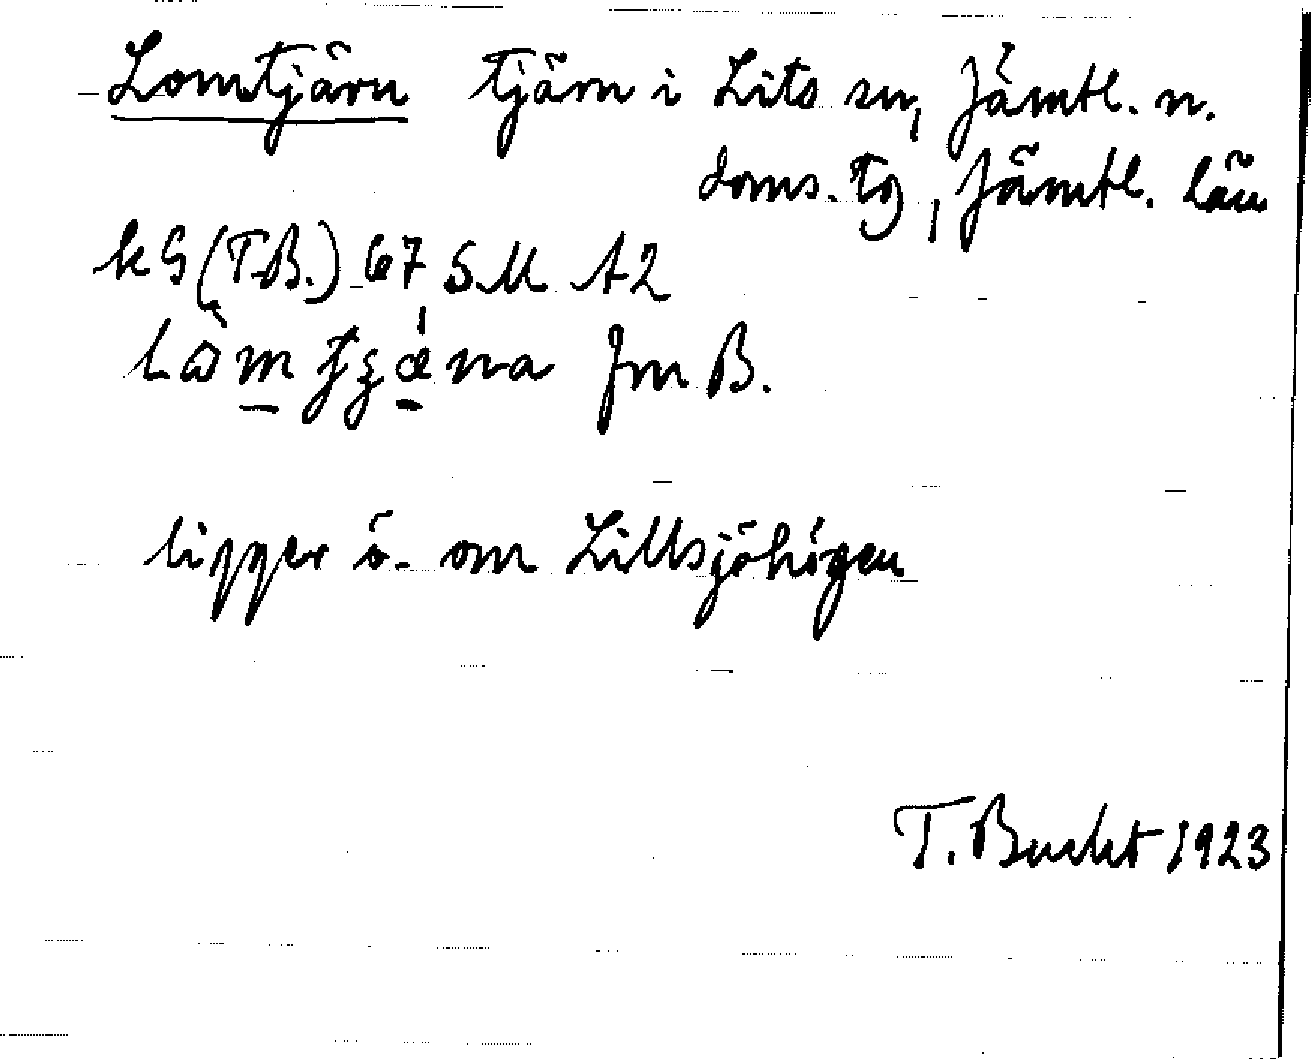 Lomtjärn tjärn i Lits sn, Jämtl. n.
doms. tg, Jämtl. län
kG (T.B.) 67 SM A2
Jm B.
ligger ö. om Lillsjöhögen
T. Bucht 1923